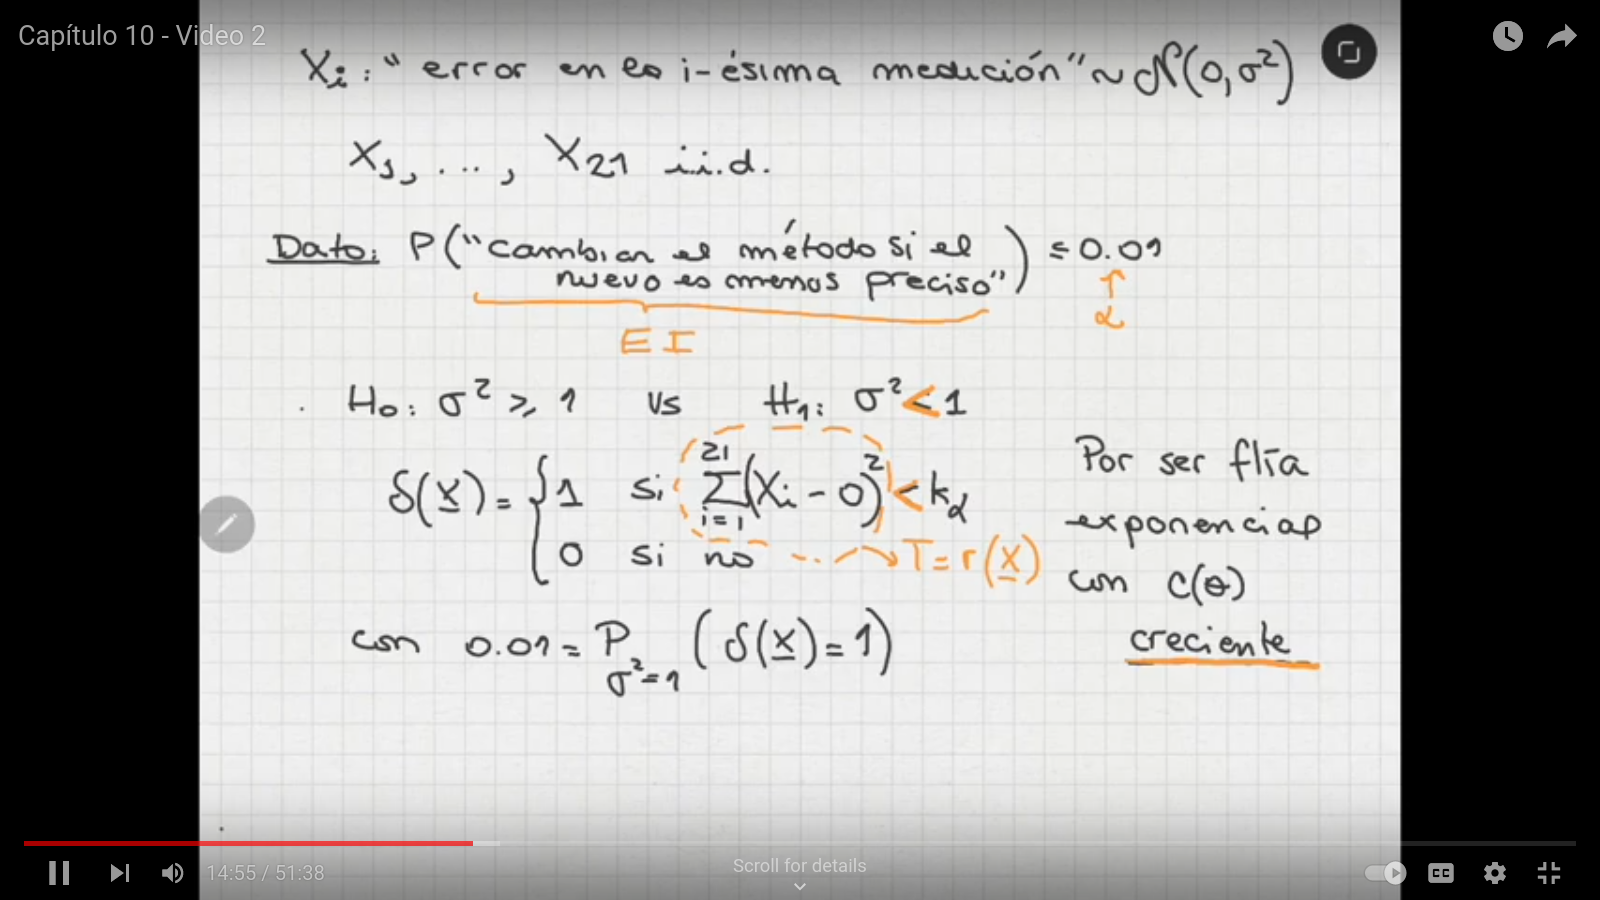 Capítulo 10 - Video 2
Xi: "error en la i-ésima medición" ~ N(0, σ²)
X1, ..., X21 i.i.d.
Dato: P("cambiar el método si el nuevo es menos preciso") ≤ 0.01
↑
α
EI
H0: σ² ≥ 1 vs H1: σ² < 1
δ(X) = { 1 si Σ_{i=1}^{21} (Xi - 0)² < kα
0 si no --→ T = r(X)
con 0.01 = P_{σ²=1} (δ(X) = 1)
Por ser flia
exponencial
con C(θ)
creciente
14:55 / 51:38
Scroll for details
CC